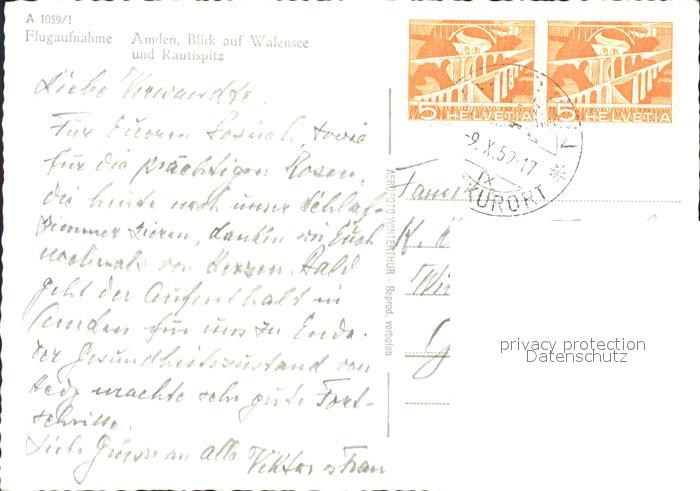 A 1059/1
Flugaufnahme Amden, Blick auf Walensee
und Rautispitz
Liebe Verwandte.
Für Eueren Besuch, sowie
für die prächtigen Rosen,
die heute noch unser Schlaf-
zimmer zieren, danken wir Euch
nochmals von Herzen. Bald
geht der Aufenthalt in
Amden für uns zu Ende.
Der Gesundheitszustand von
machte sehr gute Fort-
schritte.
Liebe Grüsse an alle Viktor u Frau
AEROFOTO WINTERTHUR - Reprod. verboten
5 HELVETIA 5 HELVETIA
-9.X.50-17
IX
KURORT
Fam
K.
privacy protection
Datenschutz